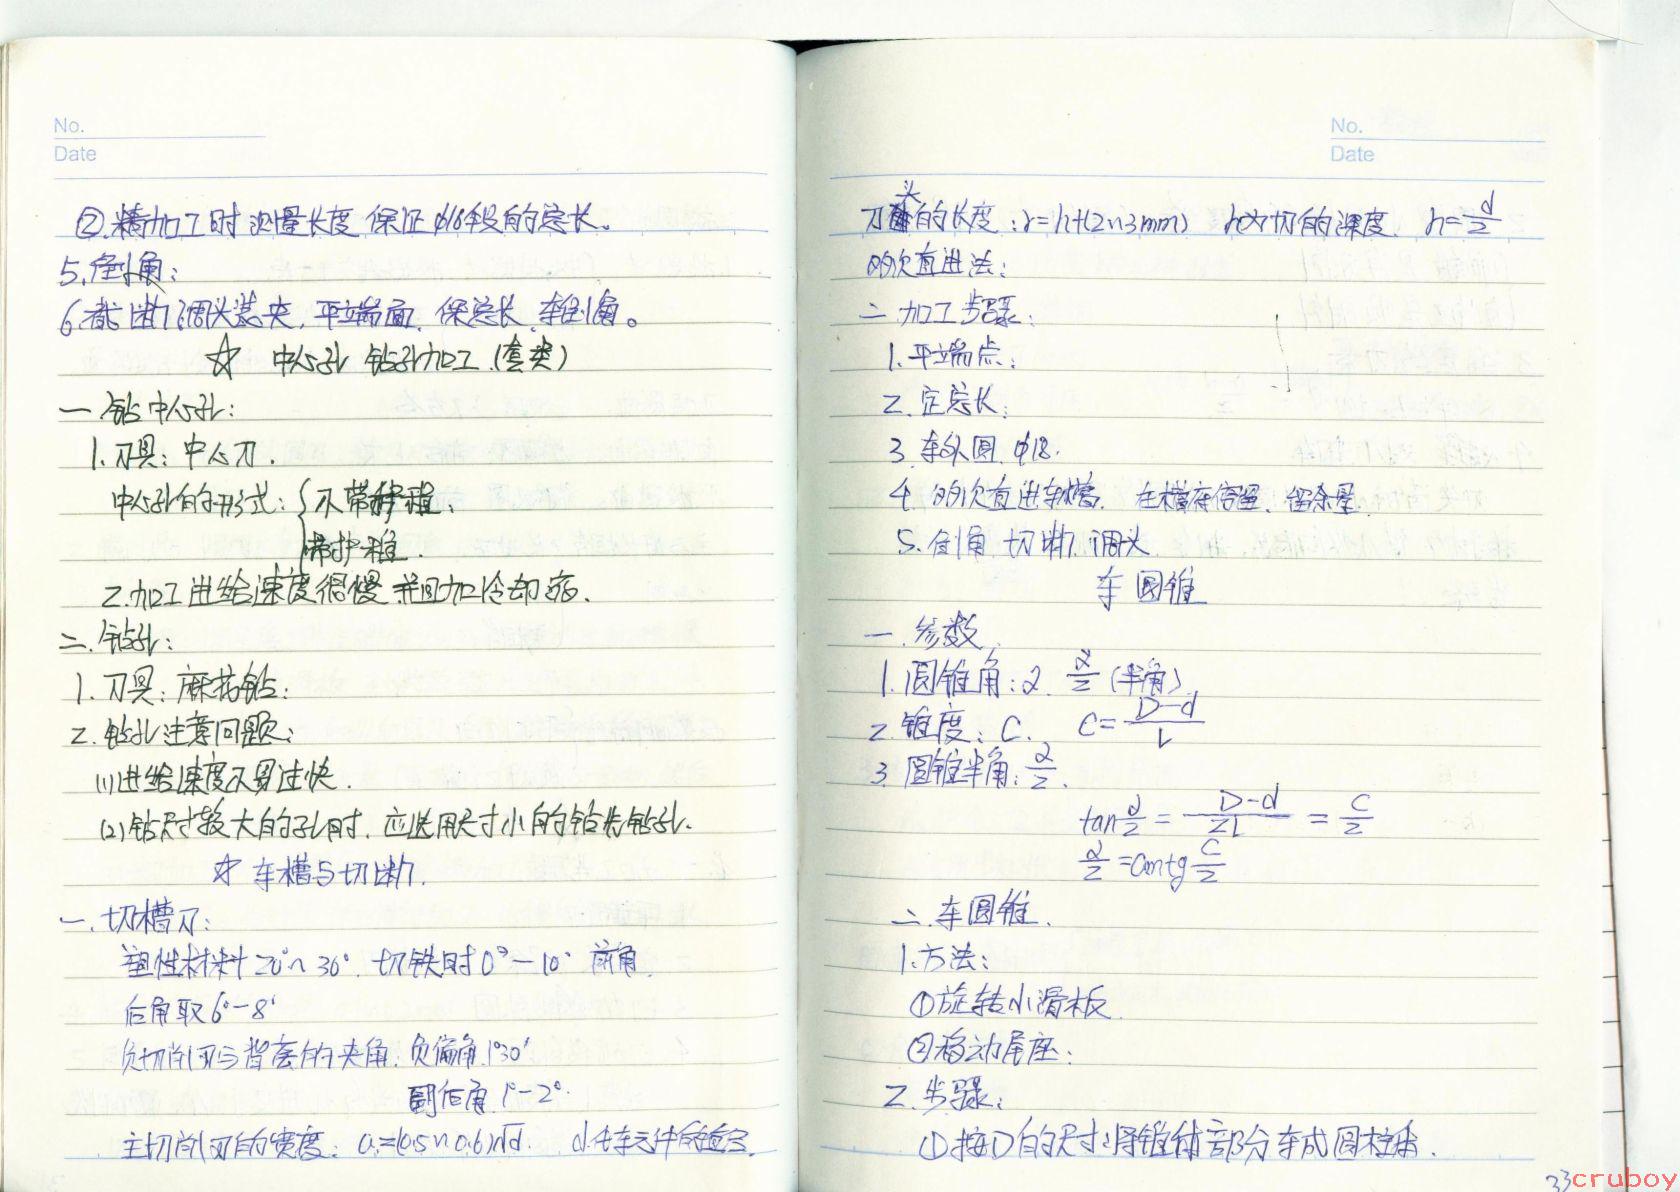 No.
Date
②.精加工时测量长度 保证φ16段的总长。
5.倒角;
6.切断调头装夹,平端面、保总长、车倒角。
☆ 中心孔 钻孔加工.(套类)
一.钻中心孔:
1.刀具:中心刀.
中心孔的形式:{不带护锥;
带护锥.
2.加工进给速度很慢 并且加冷却液.
二.钻孔:
1.刀具:麻花钻;
2.钻孔注意问题;
(1)进给速度不易过快.
(2)钻尺寸较大的孔时.应选用尺寸小的钻先钻孔.
☆ 车槽与切断.
一.切槽刀:
塑性材料20°~30°.切铁时0°—10° 前角.
后角取6°—8°
负切削刃与背套的夹角.负偏角.1°30′
副后角 1°—2°.
主切削刃的宽度: a=(0.5~0.6)√d. d.代车元件的直径
No.
Date
刀头的长度:r=h+(2~3mm) h为切的深度. h=d/2
多次直进法;
二.加工步骤:
1.平端点;
2.定总长;
3.车外圆.φ18.
4.多次直进车槽. 在槽底停留、留余量.
5.倒角.切断.调头
车圆锥
一.参数
1.圆锥角:α. α/2 (半角)
2.锥度: C. C=D-d/L
3.圆锥半角:α/2.
tanα/2 = D-d/2L = C/2
α/2 =antg C/2
二.车圆锥.
1.方法;
①旋转小滑板.
②移动尾座;
2.步骤;
①按D的尺寸将锥体部分车成圆柱体.
33
cruboy